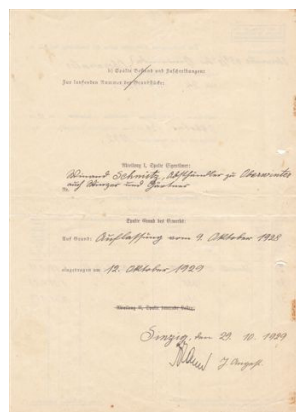 b) Spalte Bestand und Zuschreibungen:
Zur laufenden Nummer der Grundstücke:
Abteilung I, Spalte Eigentümer:
Winand Schmitz, Obsthändler zu Oberwinter
auch Winzer und Gärtner
Nr.
Spalte Grund des Erwerbs:
Auf Grund: Auflassung vom 9. Oktober 1928
eingetragen am 12. Oktober 1929
Abteilung II, Spalte
Sinzig, den 29. 10. 1929